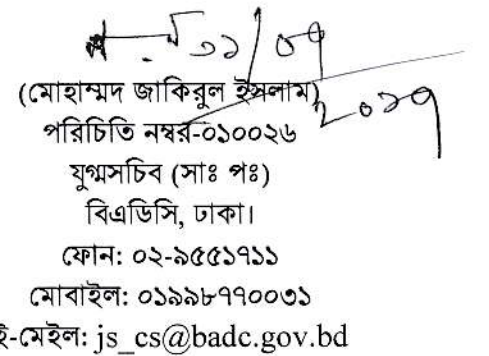 ৩১/০৭
২০১৭
(মোহাম্মদ জাকিরুল ইসলাম)
পরিচিতি নম্বর-০১০০২৬
যুগ্মসচিব (সাঃ পঃ)
বিএডিসি, ঢাকা।
ফোন: ০২-৯৫৫১৭১১
মোবাইল: ০১৯৯৮৭৭০০৩১
ই-মেইল: js_cs@badc.gov.bd